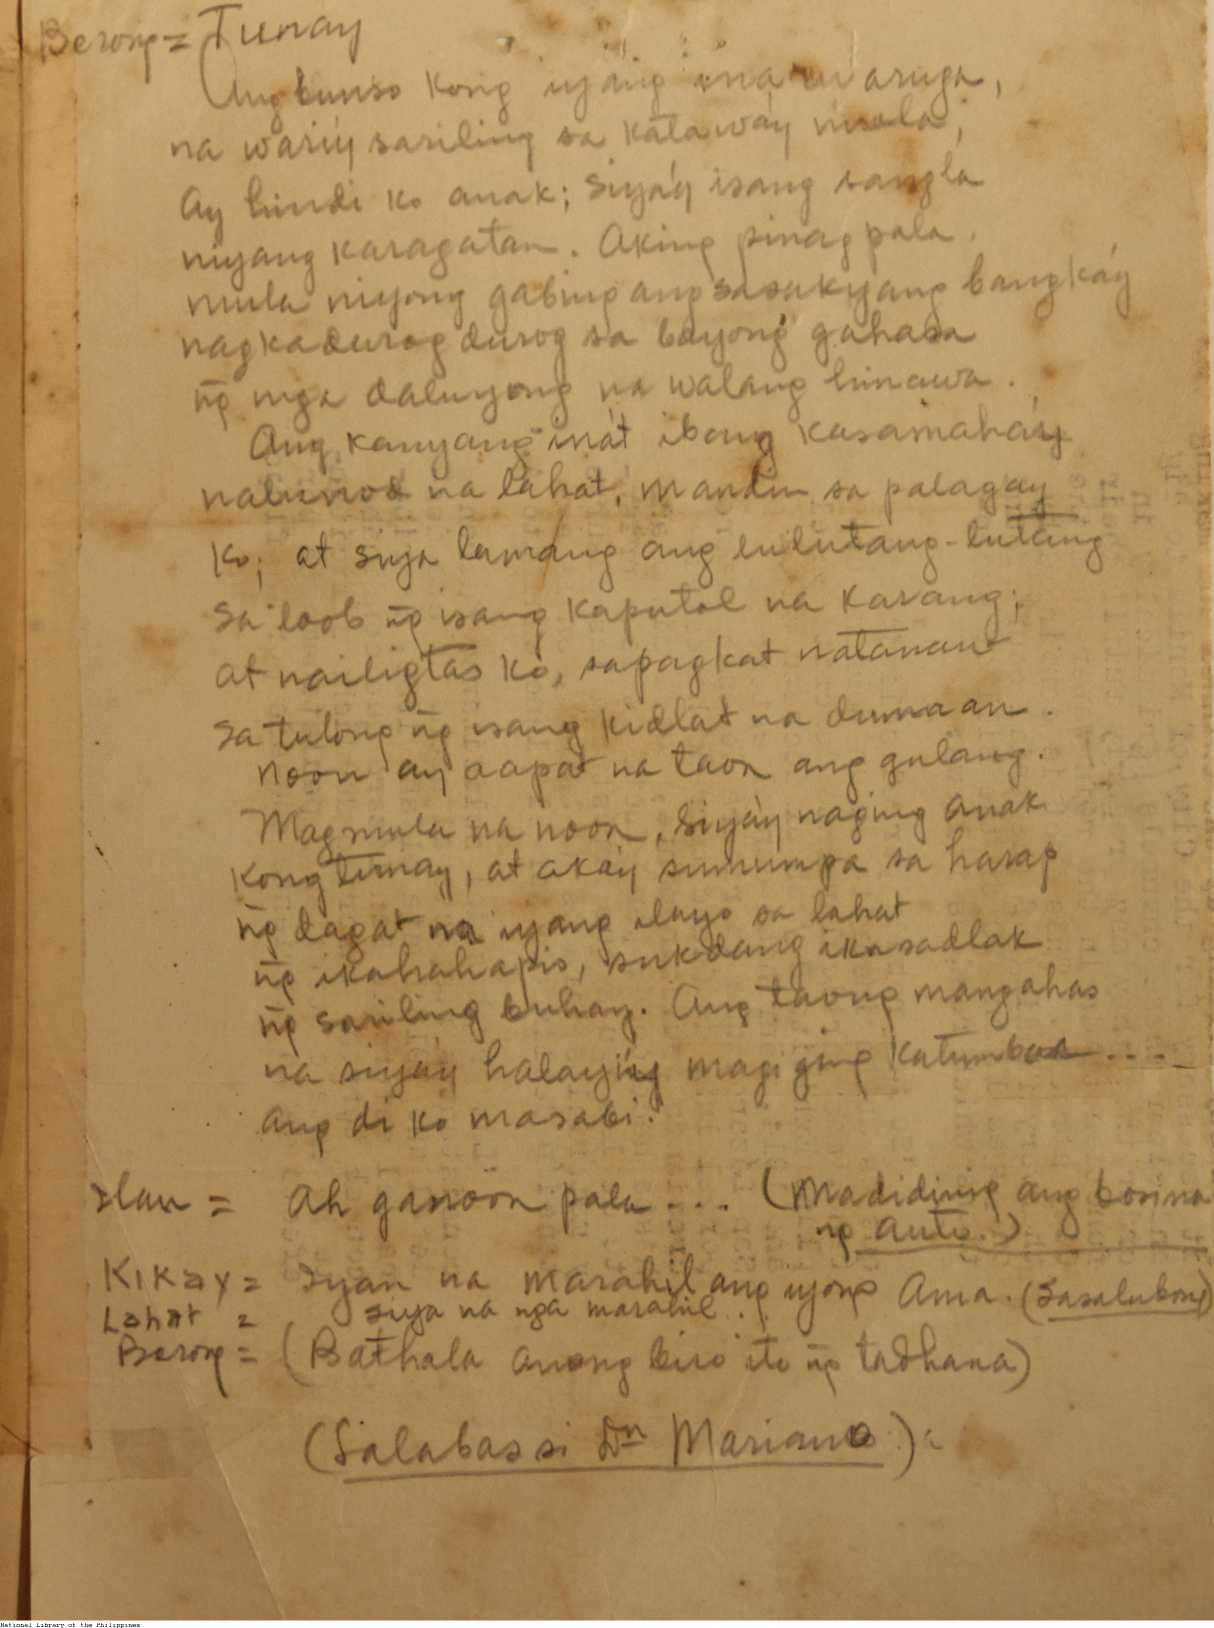 Berong = Tunay
Ang bunso kong iyang inaaruga,
na wari'y sariling sa kataway mula,
Ay hindi ko anak; siya'y isang sangla
niyang karagatan. Aking pinagpala,
mula niyong gabing ang sasakyang bangka'y
nagkadurog durog sa bayong gahasa
ng̃ mga daluyong na walang hinawa.
Ang kanyang ina't ibang kasamaha'y
nalunod na lahat, mandin sa palagay
ko; at siya lamang ang lulutang-lutang
sa loob ng̃ isang kaputol na karang;
at nailigtas ko, sapagkat natanaw
sa tulong ng̃ isang kidlat na dumaan.
Noon ay aapat na taon ang gulang.
Magmula na noon, siya'y naging anak
kong tunay, at ako'y sumumpa sa harap
ng̃ dagat na iyang ilayo sa lahat
ng̃ ikahahapis, sukdang ikasadlak
ng̃ sariling buhay. Ang taong mangahas
na siya'y halayi'y magiging katumbas ....
ang di ko masabi.
Ilaw = Ah ganoon pala .... (Madidinig ang bosina
ng̃ auto.)
Kikay = Iyan na marahil ang iyong Ama. (Sasalubong)
Lahat = Siya na nga marahil . .
Berong = (Bathala anong biro ito ng̃ tadhana)
(Lalabas si Dn Mariano):
National Library of the Philippines